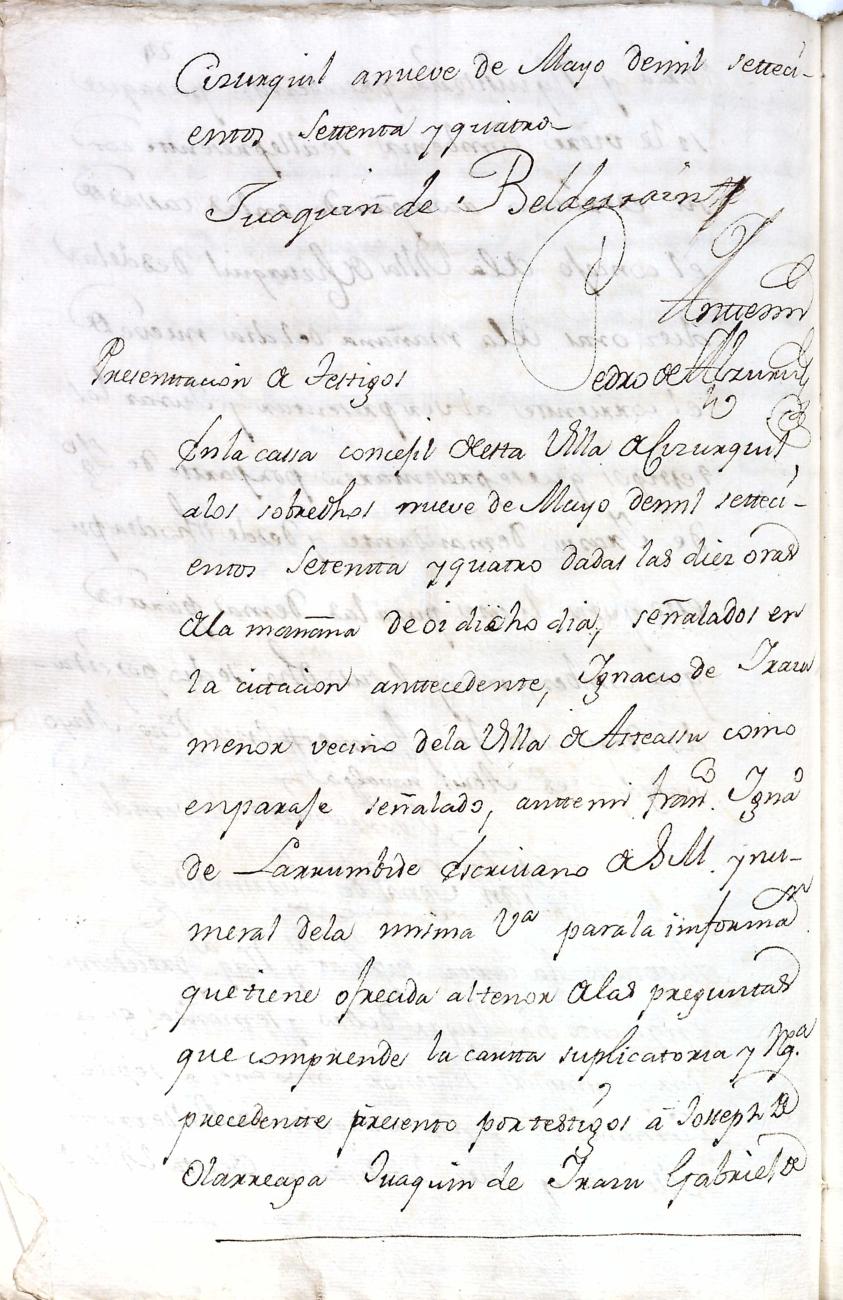 Cizurquil a nueve de Mayo demil setteci-
entos settenta y quatro
Juaquin de Belderrain
Anttemi
Pedro de Alzuru
Presenttacion de testigos
En la cassa consejil de esta Villa de Cizurquil,
alos sobredhos nueve de Mayo demil setteci-
entos setentta y quatro dadas las diez oras
de la mañana de oi dicho dia, señalados en
la cittacion anttecedente, Ignacio de Irazu
menor vecino dela Villa de Asteassu como
en paraje señalado, anttemi Franco. Igno
de Larrumbide Escrivano de S M. y nu-
meral dela misma Va para la informaon
que tiene ofrecida al tenor de las preguntas
que comprende la cartta suplicatoria y Rqa.
precedentte presento por testigos â Joseph de
Olarreaga Juaquin de Irazu Gabriel de